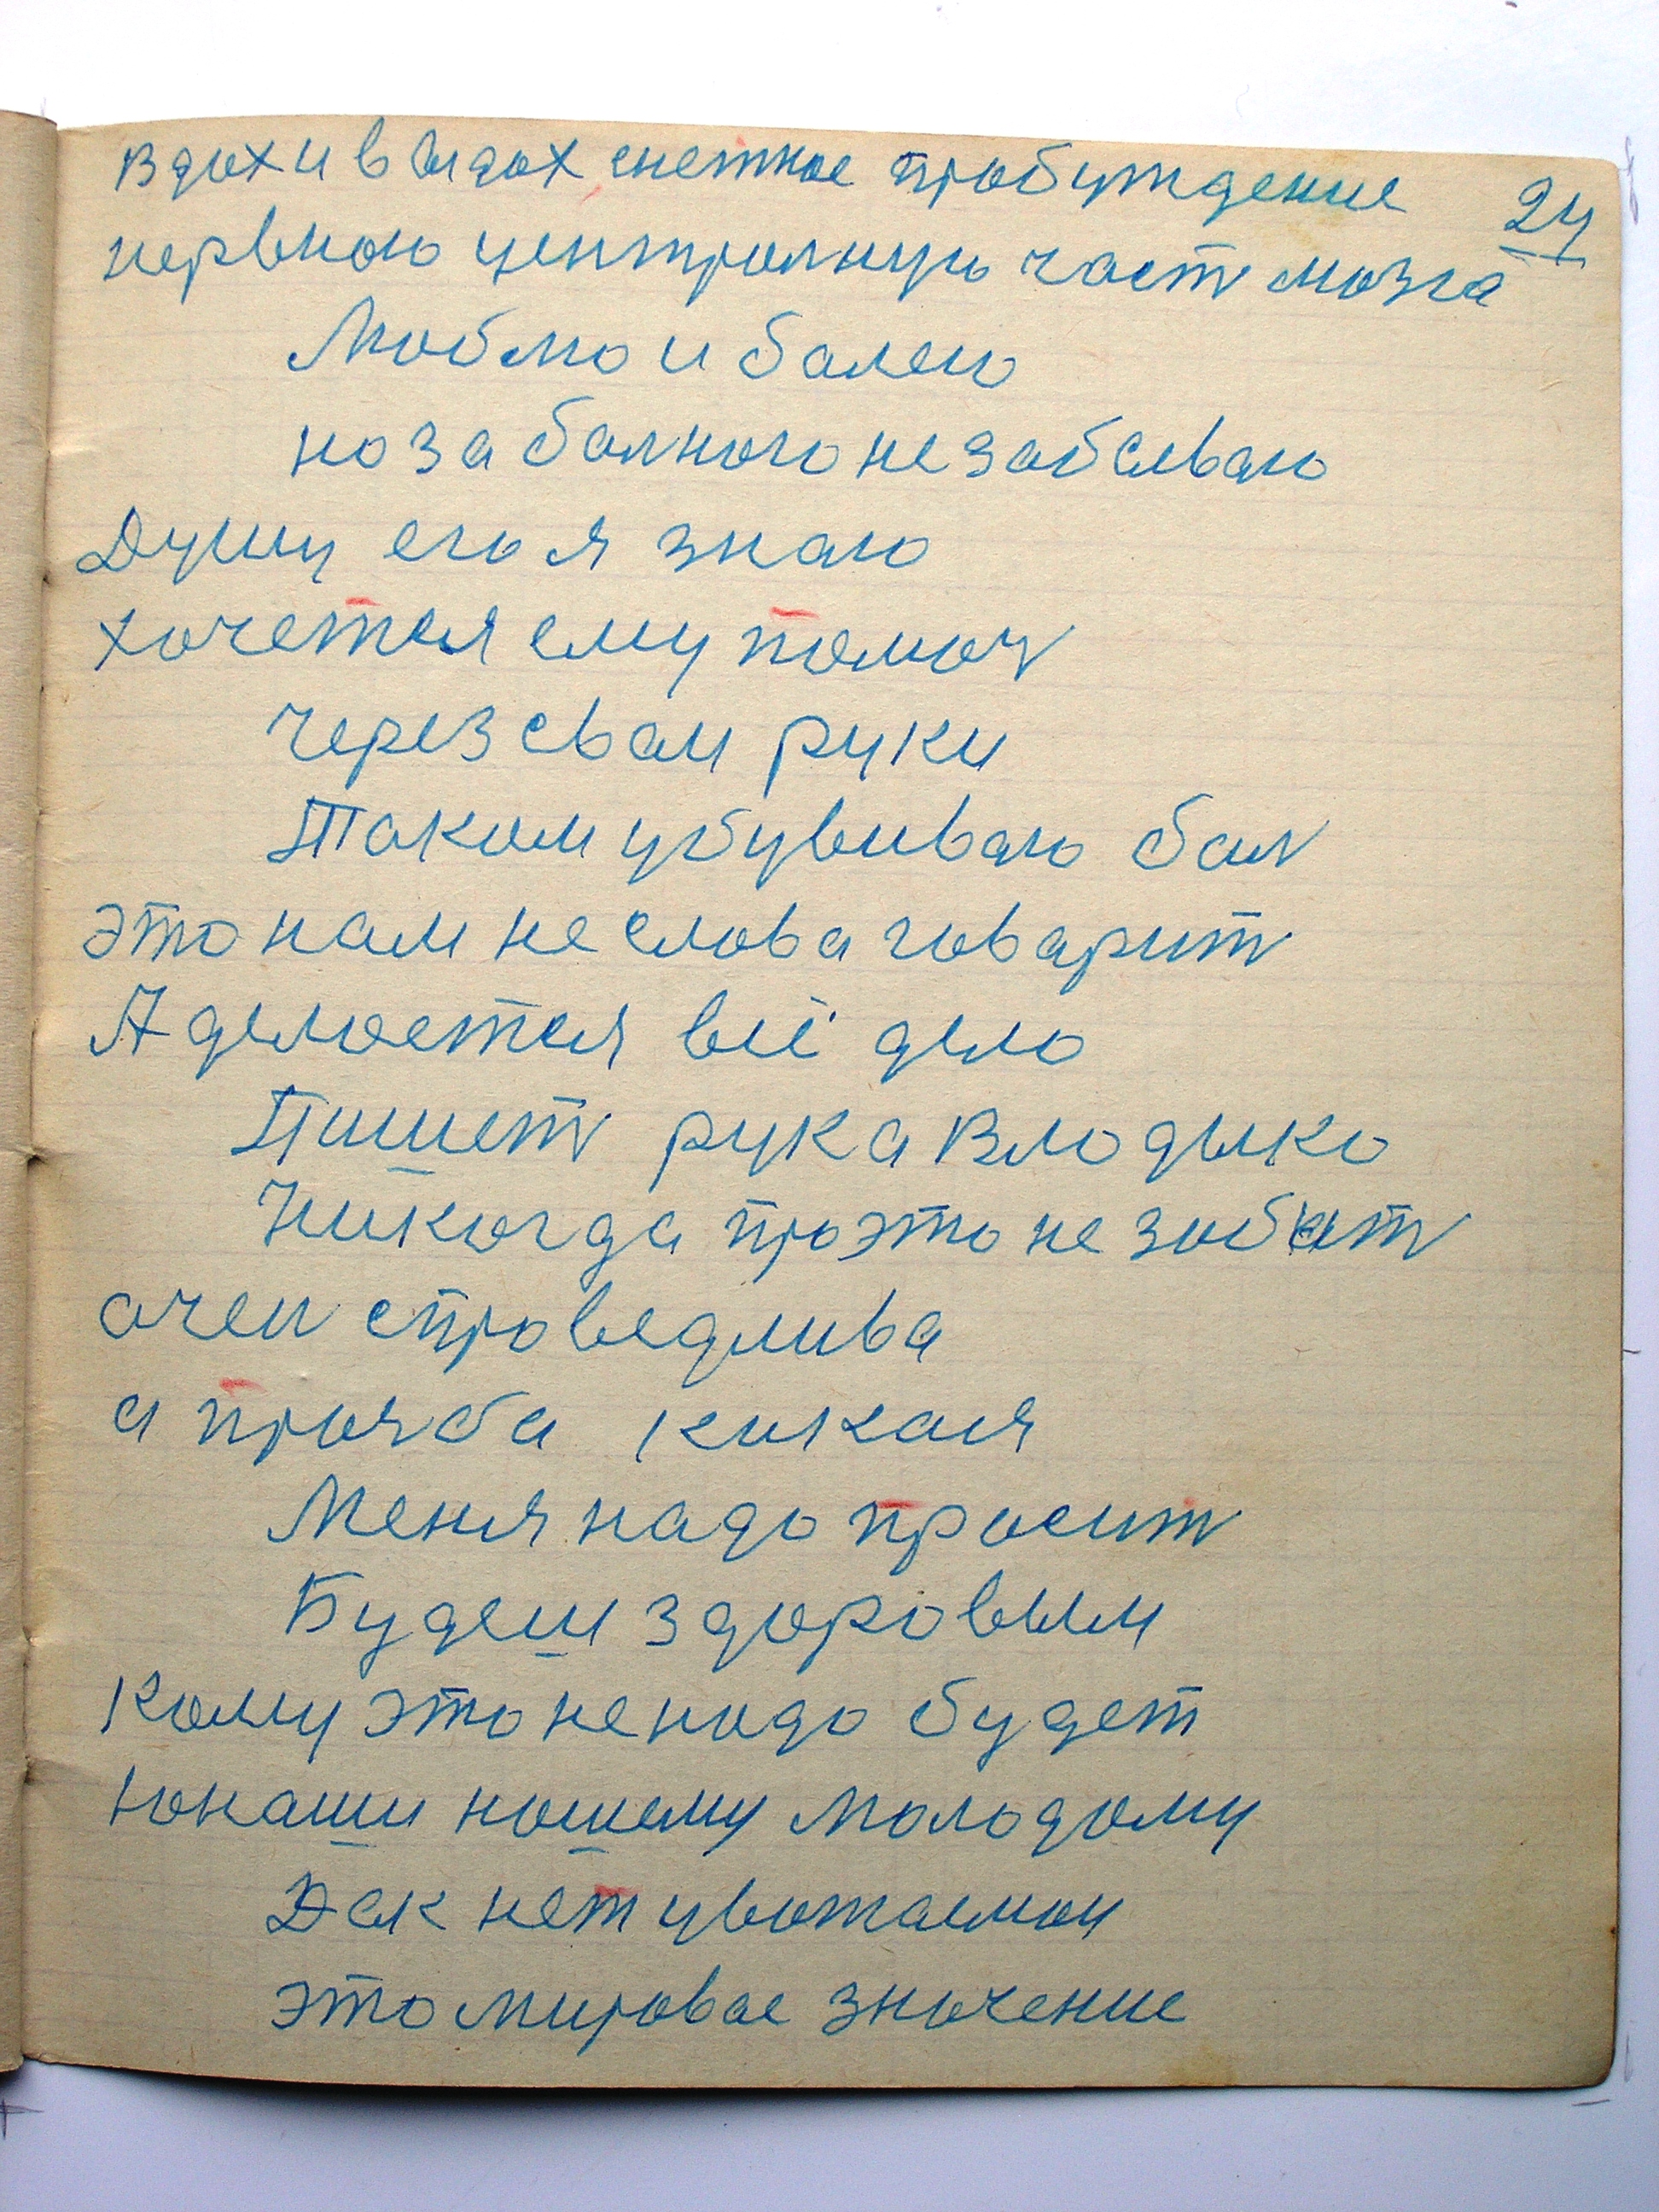 вдох и выдох снежное пробуждение
24
нервною центролную част мозга
Люблю и болею
но за болного не забываю
Душу его я знаю
хочется ему помоч
через сваи руки
Током убуviваю бол
это нам не слова говарит
А делоется всё дело
Пишет рука Влодыко
Никогда про это не зобыт
очен справедлива
а прозба кикая
Меня надо просит
Будеш здоровым
Кому это не надо будет
Юнаши ношему молодому
Дак нет увожаемои
это мировое значение